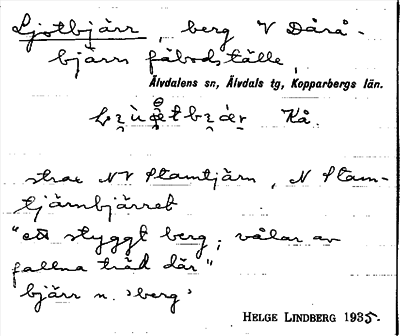 Ljotbjärr, berg V Dårå-
bjärn fäbodställe,
Älvdalens sn, Älvdals tg, Kopparbergs län.
Kå.
strax NV Stamtjärn, N Stam-
tjärnbjärret
"ett styggt berg; vålar av
fallna träd där"
bjärr n. 'berg'
HELGE LINDBERG 1935.